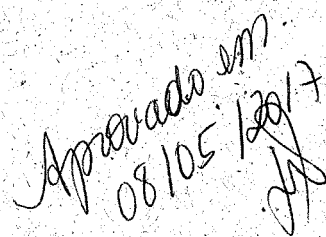 Aprovado em.
08/05/2017